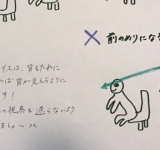 ✕ 前のめりにな
イスは、背もたれに
ば 首が見えるように
す!
の視界を遮らないよう
ましょ〜っ